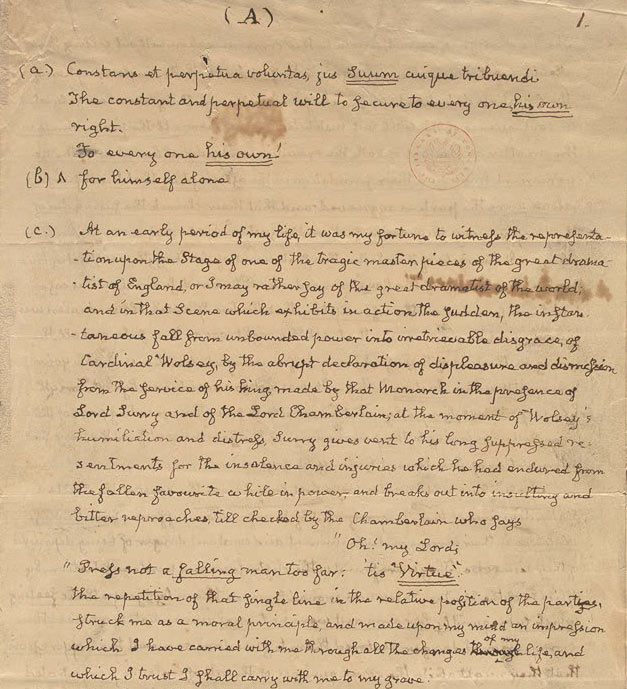 (A) 1.
(a.) Constans et perpetua voluntas, jus suum cuique tribuendi.
The constant and perpetual will to secure to every one his own
right.
To every one his own!
(b) ^ for himself alone
(c.) At an early period of my life, it was my fortune to witness the representa-
-tion upon the Stage of one of the tragic master pieces of the great drama-
-tist of England, or I may rather say of the great dramatist of the world;
and in that Scene which exhibits in action the sudden, the instan-
-taneous fall from unbounded power into irretrievable disgrace, of
Cardinal Wolsey, by the abrupt declaration of displeasure and dismission
from the service of his King, made by that Monarch in the presence of
Lord Surry and of the Lord Chamberlain; at the moment of Wolsey's
humiliation and distress, Surry gives vent to his long suppressed re-
sentments for the insolence and injuries which he had endured from
the fallen favourite while in power, and breaks out into insulting and
bitter reproaches, till checked by the Chamberlain who says
"Oh! my Lord;
"Press not a falling man too far: tis Virtue".
the repetition of that single line in the relative position of the parties,
struck me as a moral principle, and made upon my mind an impression
which I have carried with me through all the changes of my life, and
which I trust I shall carry with me to my grave.